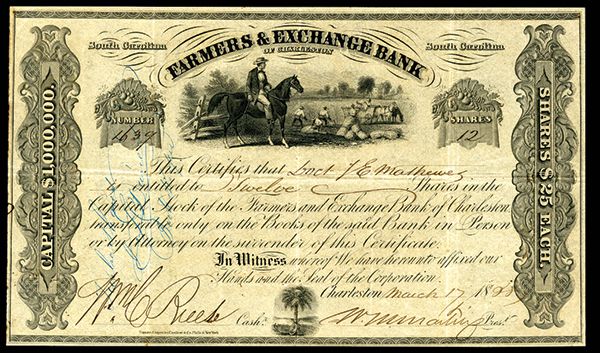 South Carolina
FARMERS & EXCHANGE BANK
OF CHARLESTON
South Carolina
CAPITAL $1,000,000.
NUMBER
1639
SHARES
12
SHARES $25 EACH.
This Certifies that Doct J E Mathewes
is entitled to Twelve Shares in the
Capital Stock of the Farmers and Exchange Bank of Charleston
transferable only on the Books of the said Bank in Person
or by Attorney on the surrender of this Certificate.
In Witness whereof We have hereunto affixed our
Hands and the Seal of the Corporation.
Charleston March 17 18
Wm C Cash.r Pres.t